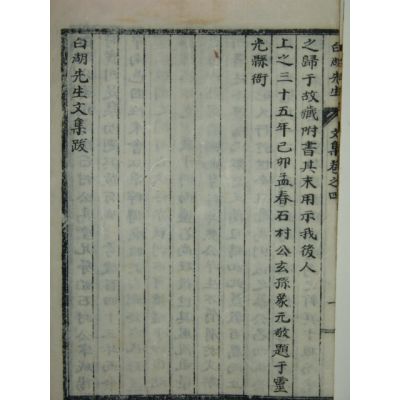 白湖先生文集卷之四
之歸于故藏附書其末用示我後人
上之三十五年己卯孟春石村公玄孫象元敬題于靈
光縣衙
白湖先生文集跋